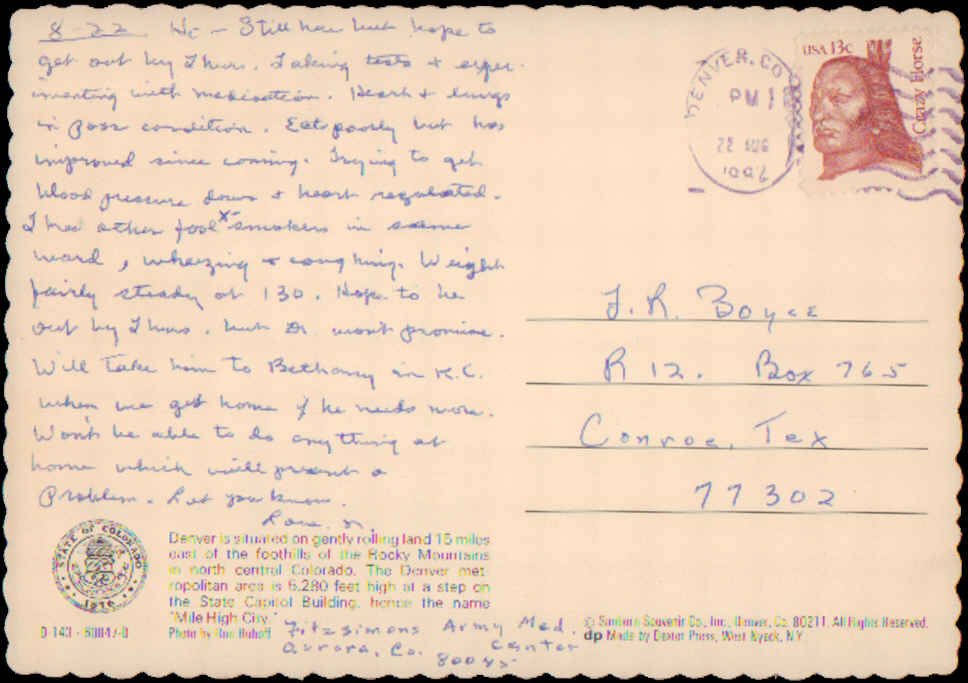 8-22 Still here but hope to
get out by Thurs. Taking tests + exper-
imenting with medication. Heart + lungs
in poor condition. Eats poorly but has
improved since coming. Trying to get
blood pressure down + heart regulated.
2 had other fool smokers in same
ward, wheezing + coughing. Weight
fairly steady at 130. Hope to be
out by Thurs. but Dr. won't promise.
Will take him to Bethany in K.C.
when we get home if he needs more.
Won't be able to do anything at
home which will present a
problem. Let you know.
Love,
DENVER, CO
PM
22 AUG
USA 13c
Crazy Horse
J. R. Boyce
R 12. Box 765
Conroe, Tex
77302
STATE OF COLORADO
1876
Denver is situated on gently rolling land 15 miles
east of the foothills of the Rocky Mountains
in north central Colorado. The Denver met-
ropolitan area is 5,280 feet high at a step on
the State Capitol Building, hence the name
"Mile High City."
Photo by Ron Ruhoff
Fitzsimons Army Med.
Center
Aurora, Co.
80045
© Sanborn Souvenir Co., Inc., Denver, Co. 80211, All Rights Reserved.
dp Made by Dexter Press, West Nyack, N.Y.